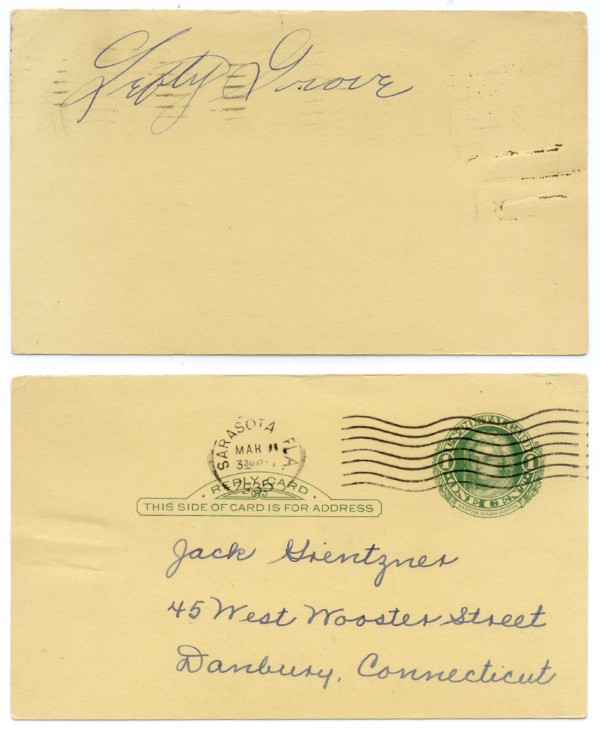 Lefty Grove
SARASOTA FLA.
MAR
330 PM
1935
REPLY CARD
THIS SIDE OF CARD IS FOR ADDRESS
ONE CENT
MARTHA WASHINGTON
Jack Grentzner
45 West Wooster Street
Danbury, Connecticut